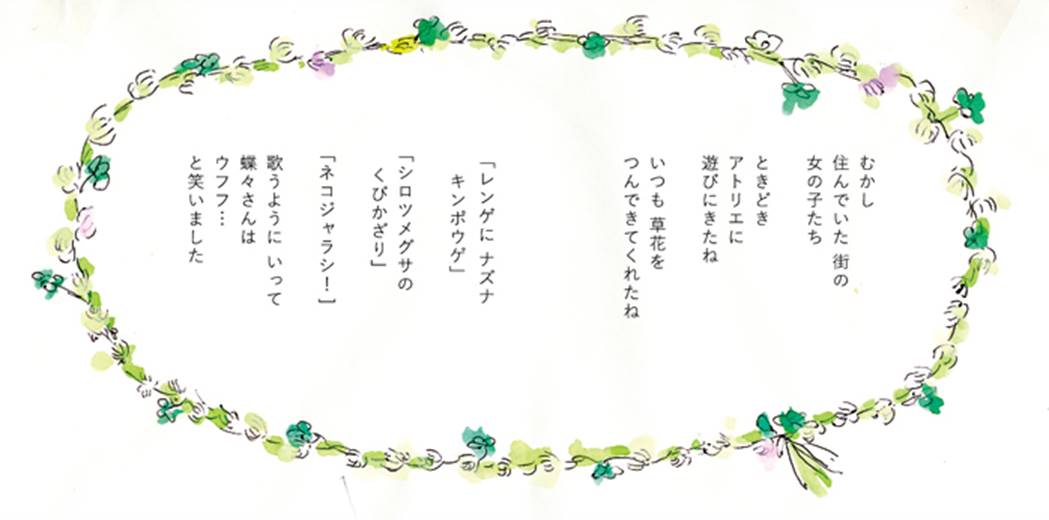 むかし
住んでいた 街の
女の子たち
ときどき
アトリエに
遊びにきたね
いつも 草花を
つんできてくれたね
「レンゲに ナズナ
キンポウゲ」
「シロツメグサの
くびかざり」
「ネコジャラシ！」
歌うように いって
蝶々さんは
ウフフ…
と笑いました